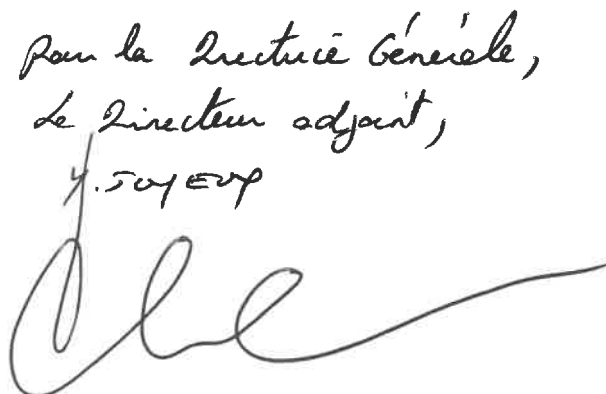 Pour la Directrice Générale,
Le Directeur adjoint,
Y. JOYEUX